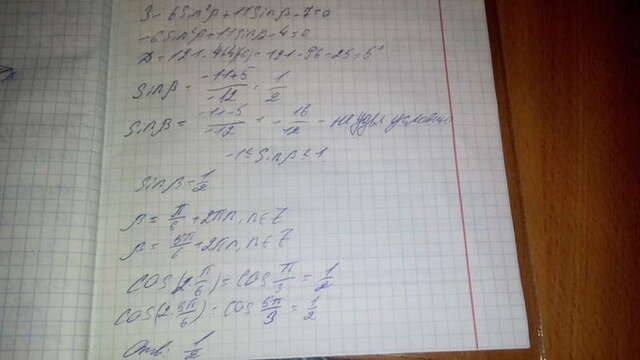 3 - 6sin²β + 11sinβ - 7 = 0
-6sin²β + 11sinβ - 4 = 0
D = 121 - 4·4·6 = 121 - 96 = 25 = 5²
sinβ = (-11+5)/(-12) = 1/2
sinβ = (-11-5)/(-12) = -16/12 - не удвл условию
-1 ≤ sinβ ≤ 1
sinβ = 1/2
β = π/6 + 2πn, n∈Z
β = 5π/6 + 2πn, n∈Z
cos(2·π/6) = cos π/3 = 1/2
cos(2·5π/6) = cos 5π/3 = 1/2
Отв: 1/2